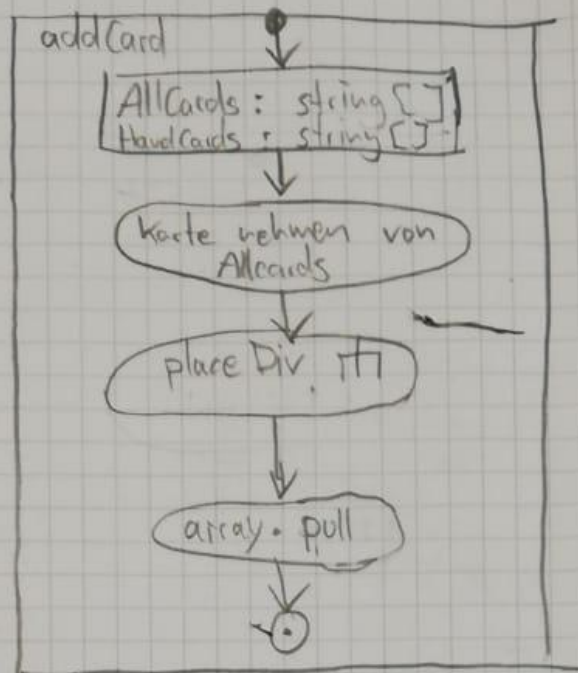 addCard
AllCards : string []
HandCards : string []
Karte nehmen von
Allcards
place Div.
array. pull